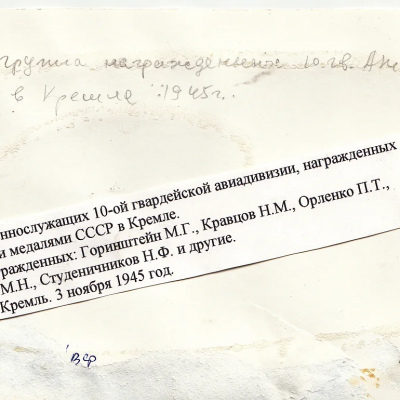 группа награжденных 10 гв. АД
в Кремле 1945г.
ннослужащих 10-ой гвардейской авиадивизии, награжденных
и медалями СССР в Кремле.
ражденных: Горинштейн М.Г., Кравцов Н.М., Орленко П.Т.,
М.Н., Студеничников Н.Ф. и другие.
Кремль. 3 ноября 1945 год.